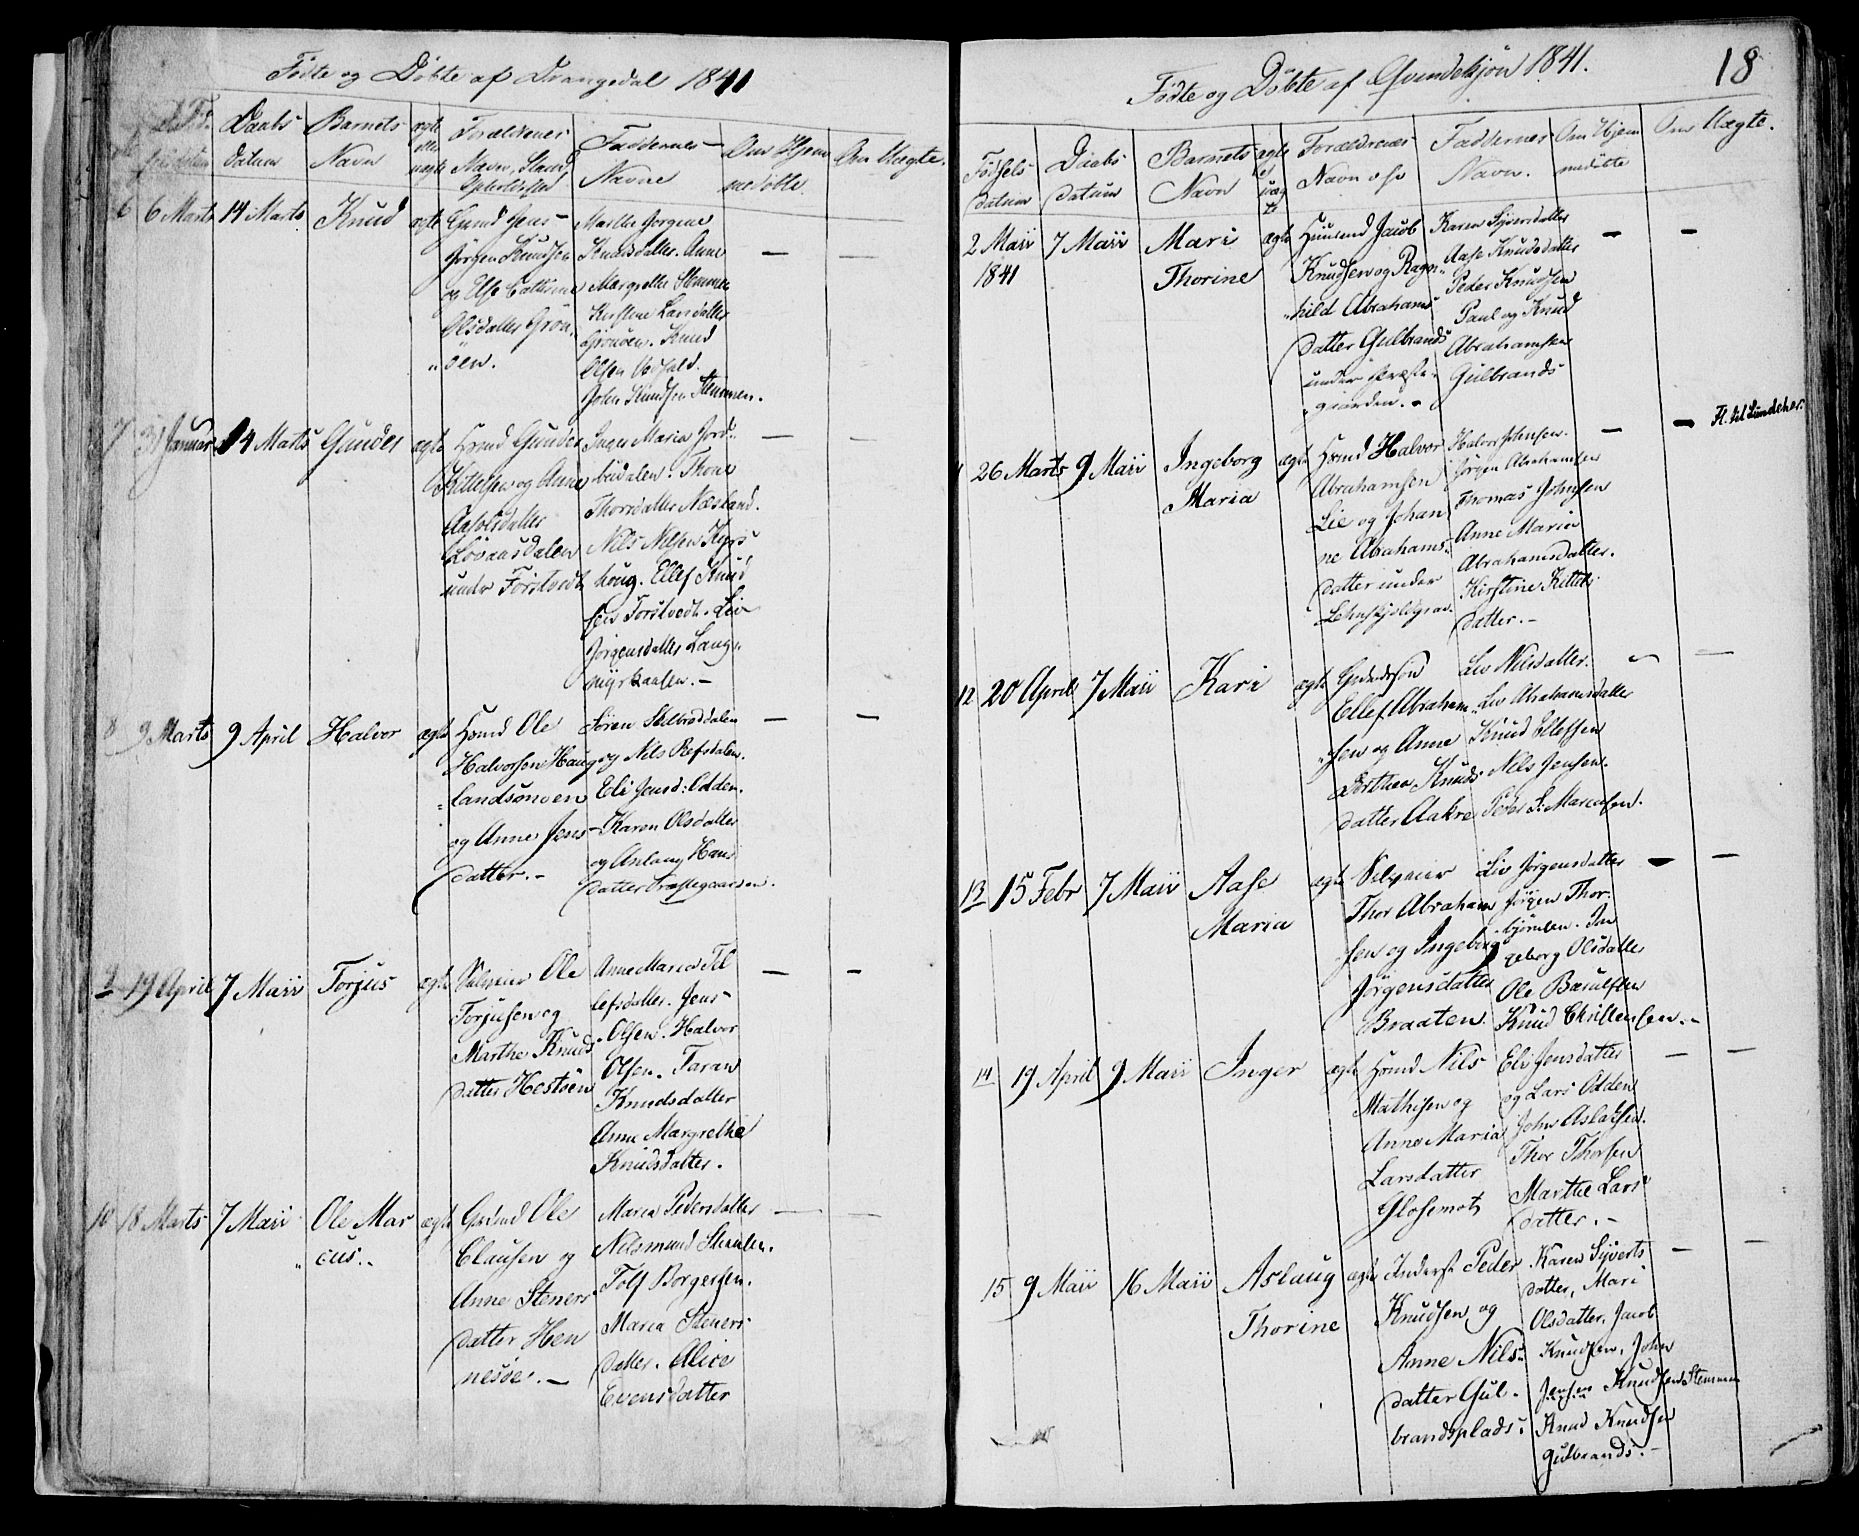 Fødte og Døbte af Drangedal 1841
Daabs datum
Barnets Navn
ægte eller uægte
Forældrenes Navn, Stand, Opholdsted
Faddernes Navne
Om Hjemmedøbte
Om Uægte.
6 6 Marts 14 Marts Knud ægte
Jørgen Knudsen
og Else Cathrine
Olsdatter Grøn
"øen.
Marthe Jorgine
Knudsdatter. Anne
Margrethe Stemmen
Kirstine Larsdatter
Grønøen. Knud
Olsen
John Knudsen Stemmen.
7 31 Januar 14 Marts Gunder ægte
Hmd Gunder
Kittelsen og Anne
Løvaasdalen
under Førstvedt
Inger Maria Jord-
bødalen. Thone
Thorsdatter Næsland.
Nils Nilsen
houg. Ellef Knud
sen Førstvedt. Liv
Jørgensdatter Lang-
myrkaalen.-
8 9 Marts 9 April Halvor ægte
Hsmd Ole
Halvorsen Haug
landsønoen
og Anne Jens-
datter.-
Søren Stilbroddalen
og Nils Refsdalen.
Eli Jensd: Odden.
Karen Olsdatter
og Anlaug Hans
datter Præstegaarden.
9 19 April 7 Maii Torjus ægte
Selveier Ole
Torjusen og
Marthe Knuds
datter Hestøen
Anne Maria Tel
lefsdatter. Jens
Olsen. Halvor
Olsen. Taran
Knudsdatter
Anne Margrethe
Knudsdatter.
10 18 Marts 7 Maii Ole Mar
cus.. ægte
Grdmd Ole
Clausen og
Anne Steners
datter Hen
nesøe.-
Maria Pedersdatter
Nilsmund
Tolf Borgersen.
Maria Steners
datter. Alice
Evensdatter
Fødte og Døbte af Qvindekjøn 1841.
18
Fødsels datum
Daabs datum
Barnets Navn
ægte e uægte
Forældrenes Navn osv
Faddernes Navn.
Om Hjemmedøbte
Om Uægte.
2 Maii 1841 7 Maii Mari
Thorine ægte
Huusmd Jacob
Knudsen og Ragn-
"hild Abrahams
datter Gulbrands
under Præste-
"giærden.
Karen Syversdatter
Aase Knudsdatter
Peder Knudsen
Paul og Knud
Abrahamsen
Gulbrands
Fl. til Sündeher.
11 26 Marts 9 Maii Ingeborg
Maria ægte
Hsmd Halvor
Abrahamsen
Lie og Johan
ne Abrahams-
datter under
Halvor Johnsen.
Jørgen Abrahamsen
Thomas Johnsen
Anne Maria
Abrahamsdatter.
Kirstine Kittels
datter.-
12 20 April 7 Maii Kari ægte
Ellef Abraham
"sen og Anne
Dorthea Knuds
datter Aakre
Liv Nilsdatter.
Liv Abrahamsdatter
Knud Ellefsen
Nils Jensen.
Peder S: Marcusen.
13 15 Febr 7 Maii Aase
Maria ægte
Selveier
Thor Abraham
sen og Ingeborg
Jørgensdatter
Braaten.
Liv Jørgensdatter
Jørgen Thor-
bjørnsen. In
geborg Olsdatter
Ole Bærulfsen
Knud Christensen.-
14 19 April 9 Maii Inger ægte
Hsmd Nils
Mathisen og
Anne Maria
Larsdatter
Glosemot
Eli Jensdatter
og Lars Odden
John Aslaksen.
Thor Thorsen
Marthe Lars
datter.-
15 9 Maii 16 Maii Aslaug
Thorine ægte
Inderst Peder
Knudsen og
Anne Nils-
datter Gul-
brandsplads.
Karen Syverts
datter, Mari
Olsdatter, Jacob
Knudsen, John
Jensen Knudsen Stemmen
Knud Knudsen
Gulbrands.-